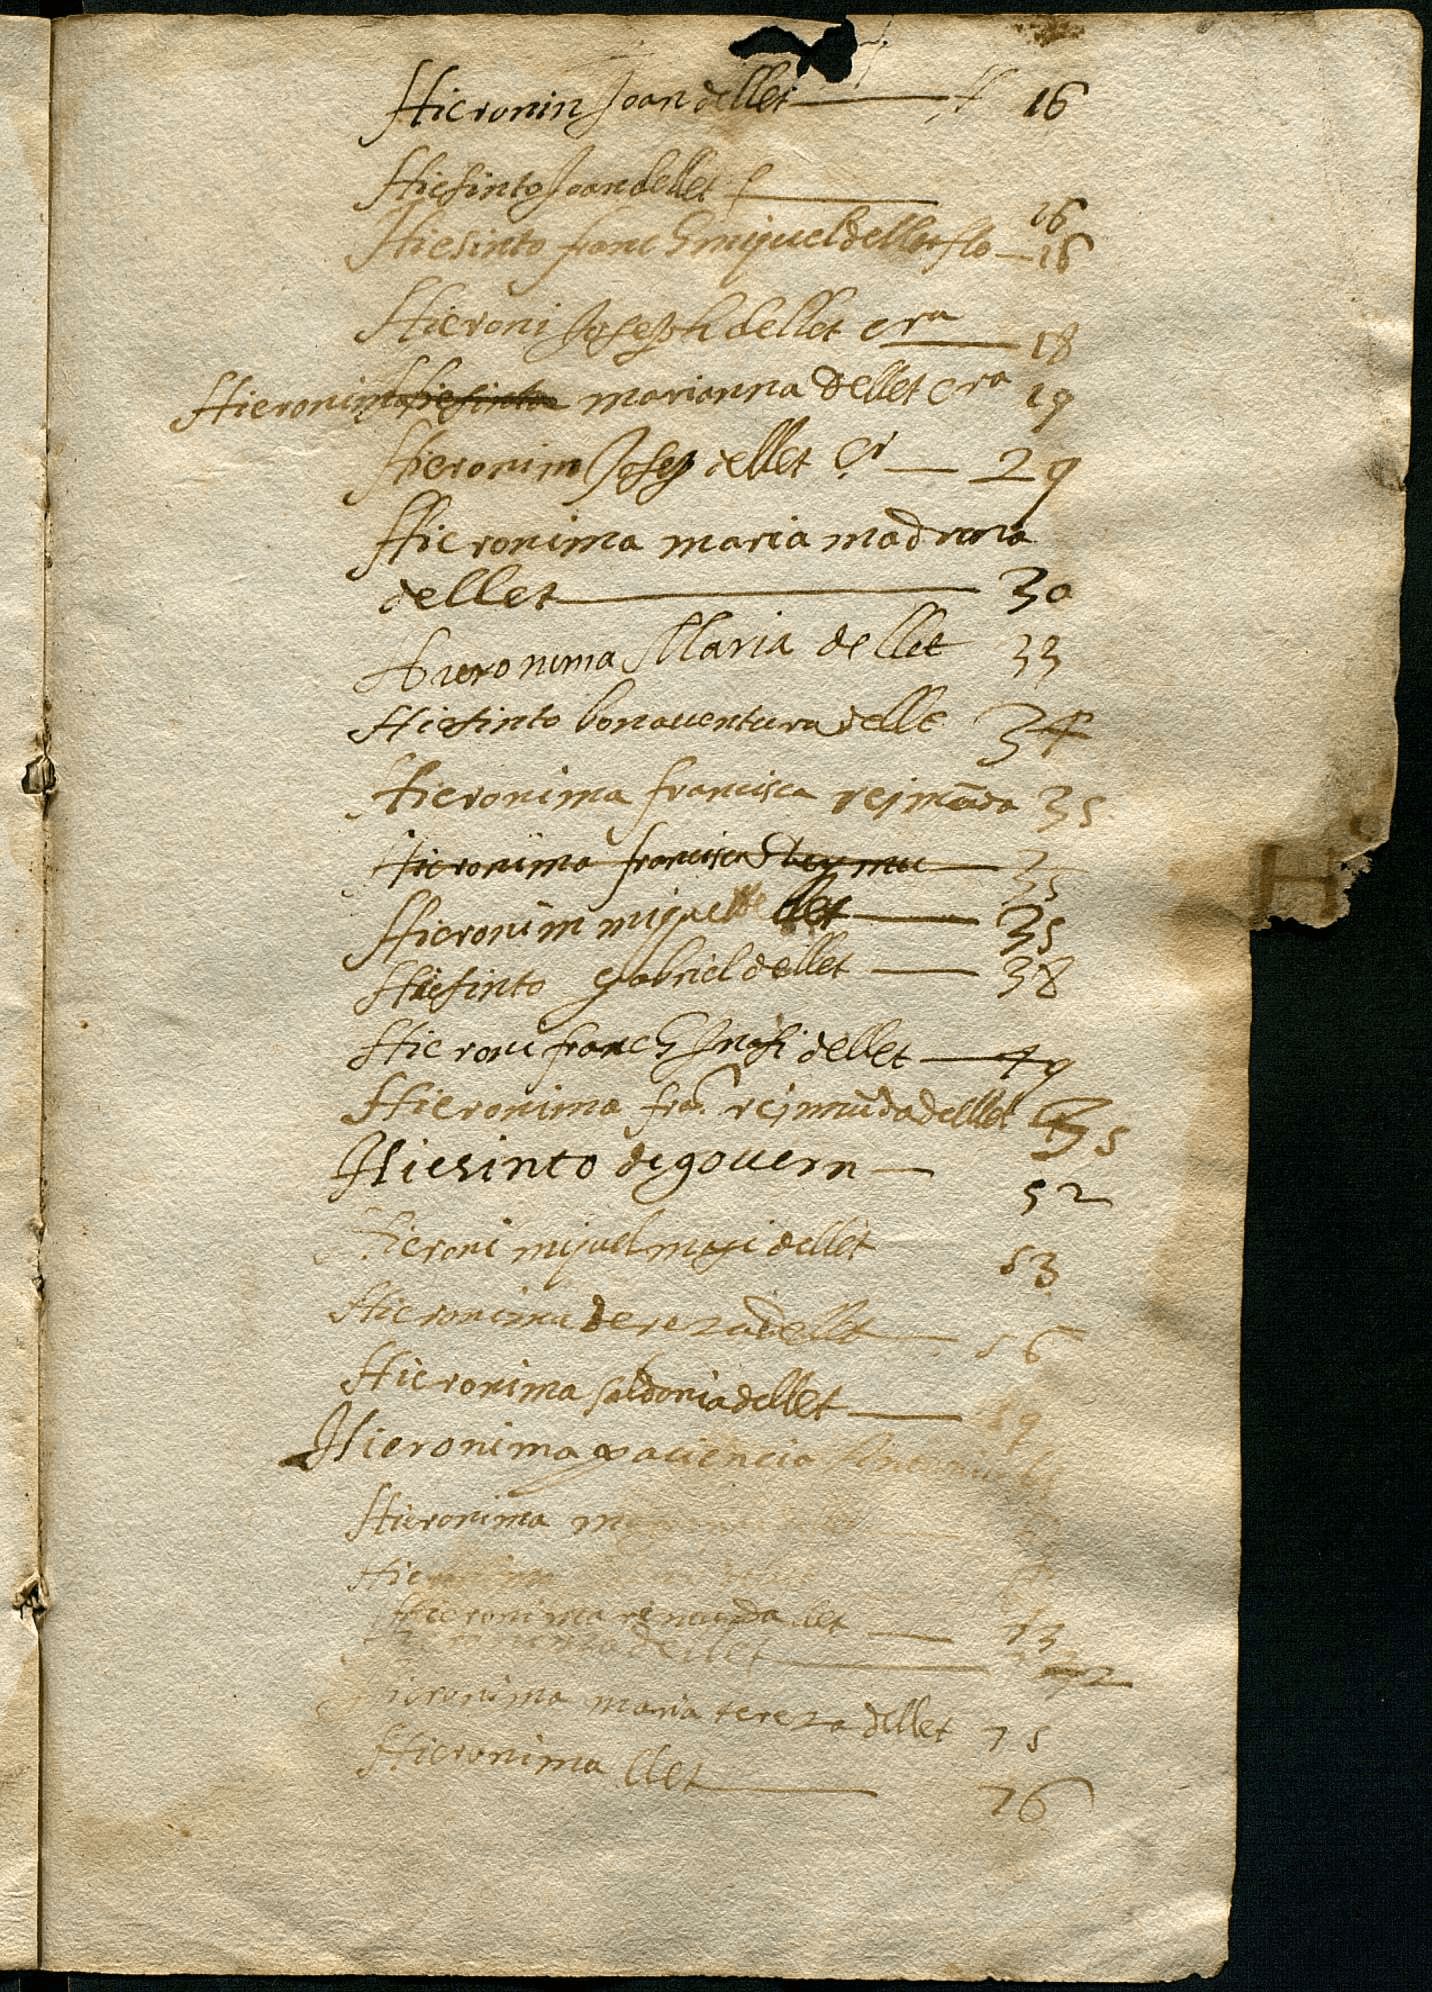 Hieronin Joan dellet 16
Hiesinto Joan dellet 16
Hiesinto franch miquel dellet flo 16
Hieroni Joseph dellet era 18
Hieronima hiesinta marianna dellet era 19
Hieronim Josep dellet er 29
Hieronima maria madrona
dellet 30
Hieronima Maria dellet 33
Hiesinto bonaventura delle 34
Hieronima francisca rejmūda 35
Hieronima francisca Reymu 35
Hieronim miquel dellet 35
Hiesinto Gabriel dellet 38
Hieroni franch Inasi dellet 49
Hieronima fra. rejmūda dellet 35
Hiesinto degovern 52
Hieroni miquel magi dellet 53
Hieronima dereza dellet 56
Hieronima saldonia dellet 59
Hieronima paciencia
Hieronima
Hieronima remunda llet 73
dellet 72
Hieronima maria tereza dellet 75
Hieronima llet 76
H